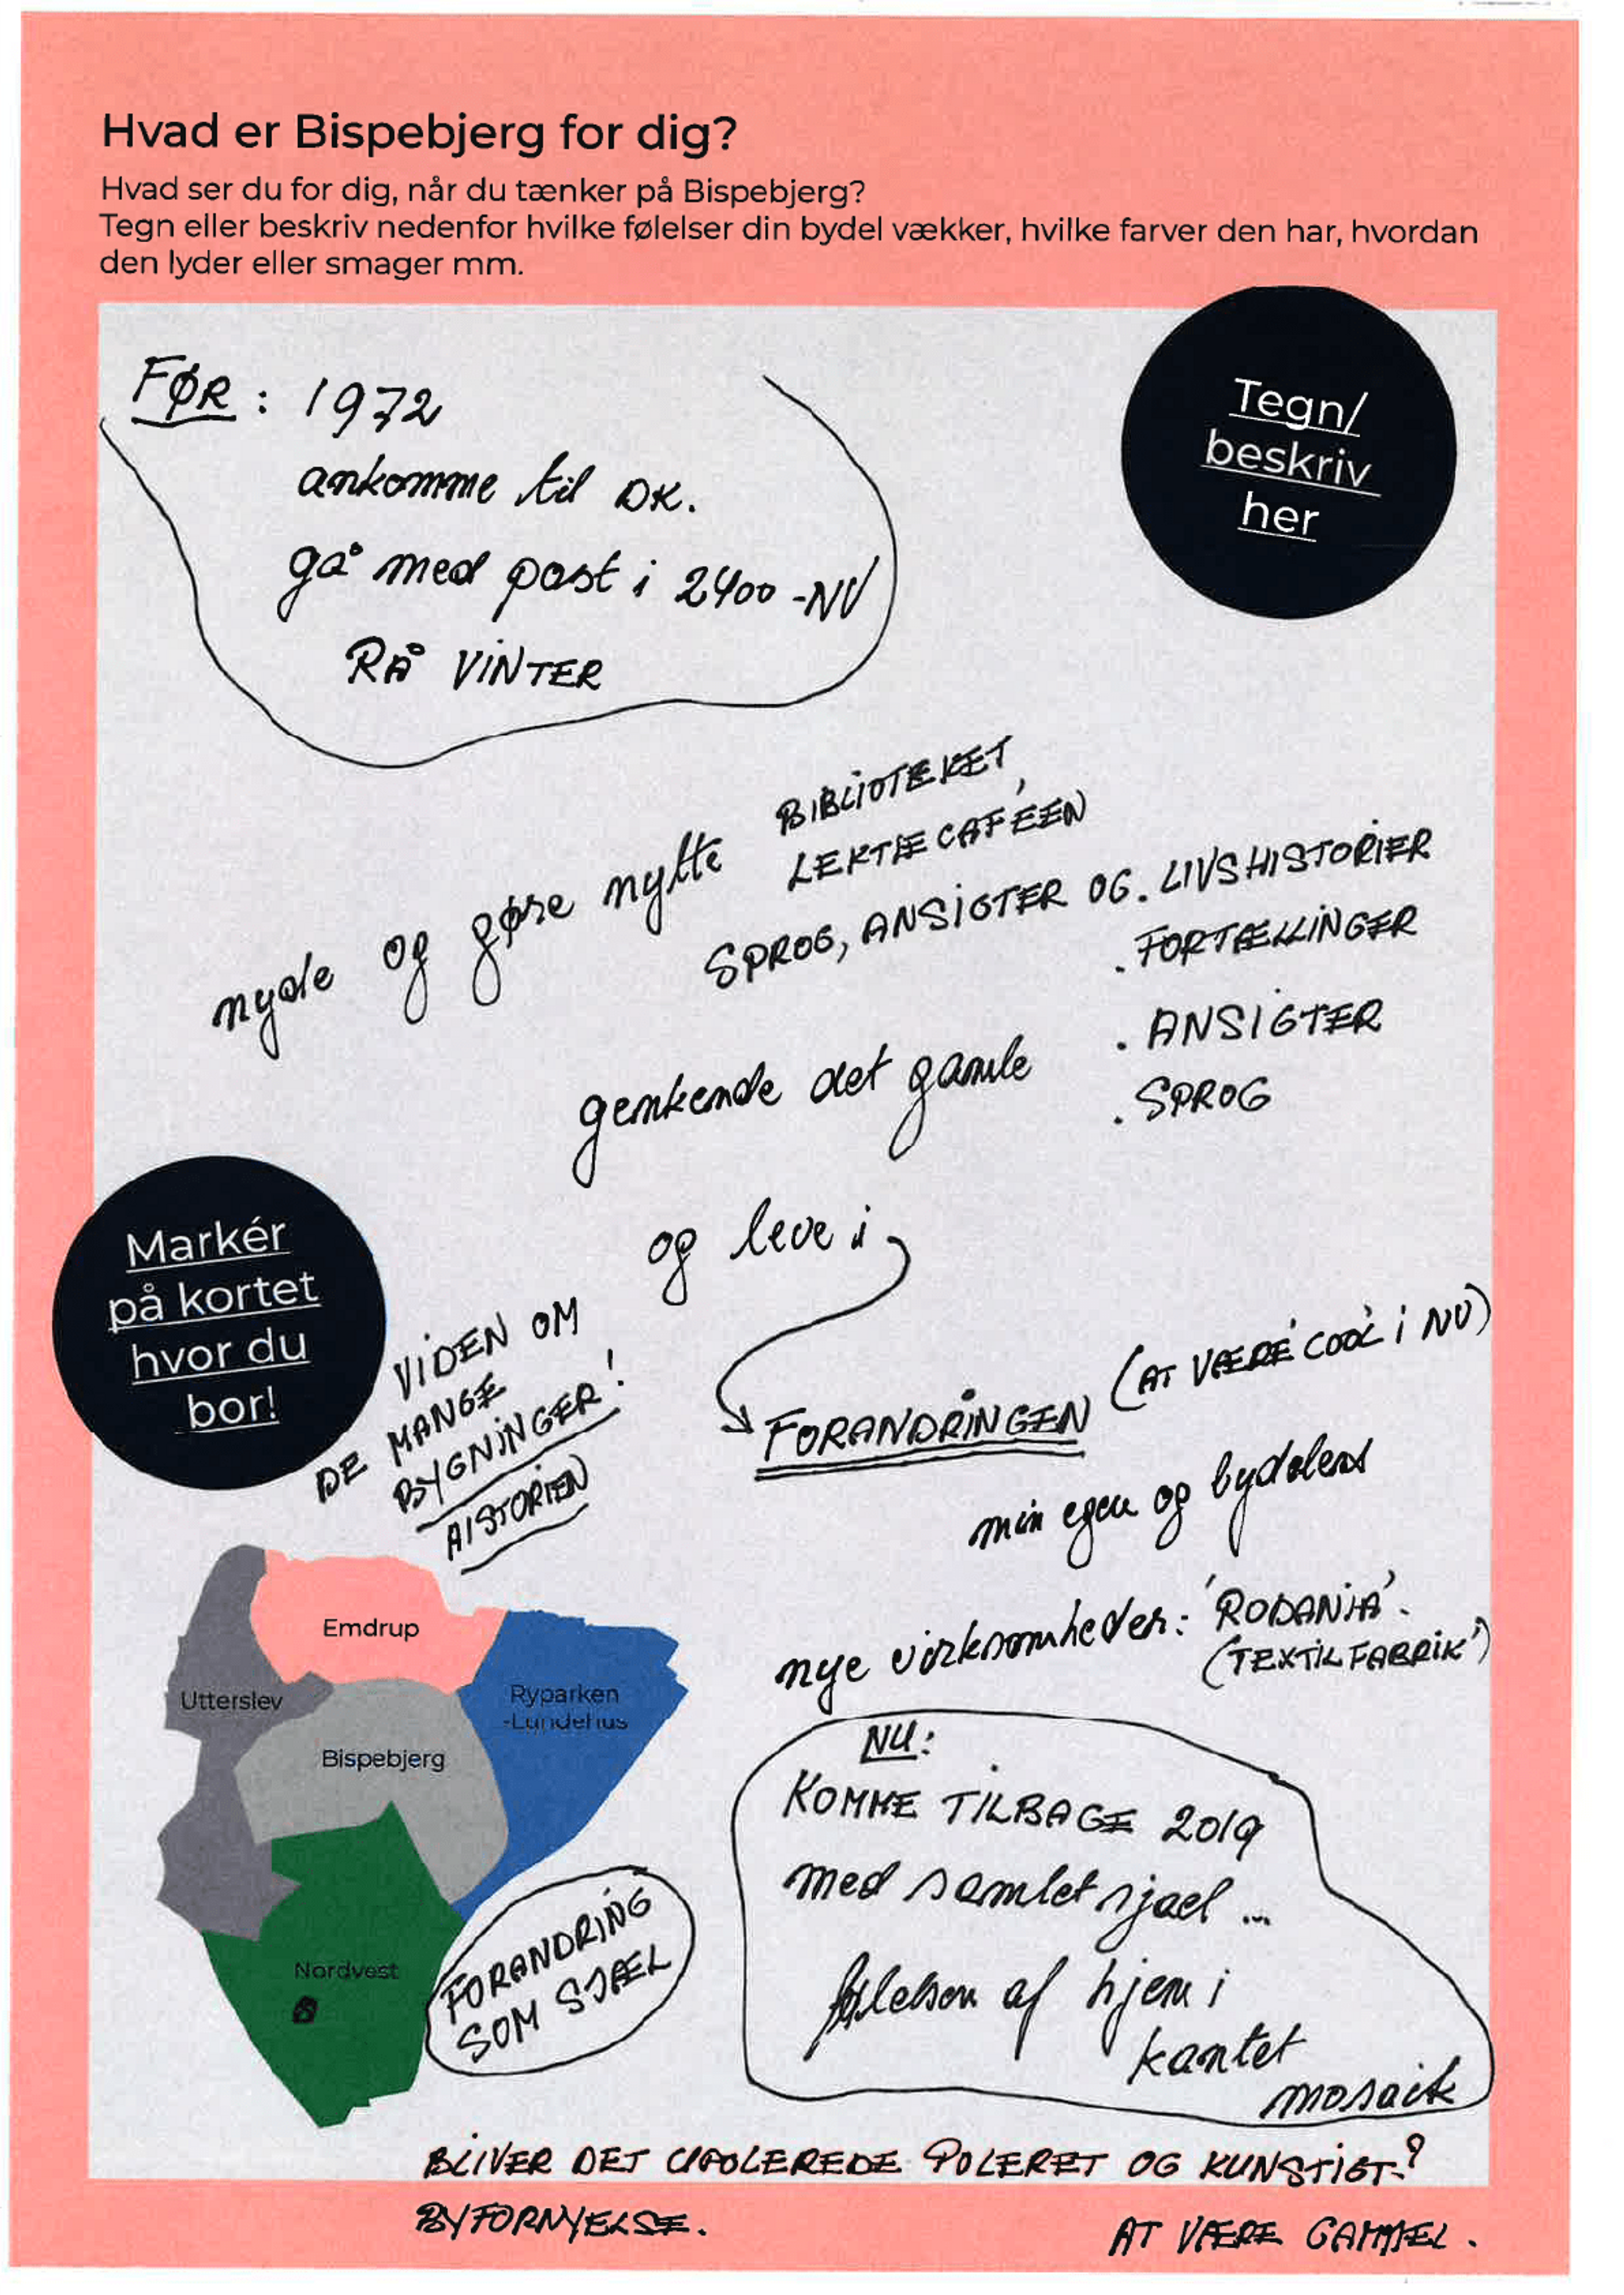 Hvad er Bispebjerg for dig?
Hvad ser du for dig, når du tænker på Bispebjerg?
Tegn eller beskriv nedenfor hvilke følelser din bydel vækker, hvilke farver den har, hvordan
den lyder eller smager mm.
Tegn/
beskriv
her
FØR: 1972
ankomme til DK.
gå med post i 2400-NV
RÅ VINTER
nyde og gøre nytte BIBLIOTEKET,
LEKTIECAFÉEN
SPROG, ANSIGTER OG . LIVSHISTORIER
. FORTÆLLINGER
. ANSIGTER
. SPROG
genkende det gamle
og leve i
FORANDRINGEN (AT VÆRE 'COOL' i NV)
min egen og bydelens
nye virksomheder: 'RODANIA'.
('TEXTIL FABRIK')
Markér
på kortet
hvor du
bor!
VIDEN OM
DE MANGE
BYGNINGER!
HISTORIEN
Emdrup
Utterslev
Ryparken
-Lundehus
Bispebjerg
Nordvest
FORANDRING
SOM SJÆL
NU:
KOMME TILBAGE 2019
med samlet sjael ...
følelsen af hjem i
kantet
mosaik
BLIVER DET UPOLEREDE POLERET OG KUNSTIGT?
BYFORNYELSE.
AT VÆRE GAMMEL.